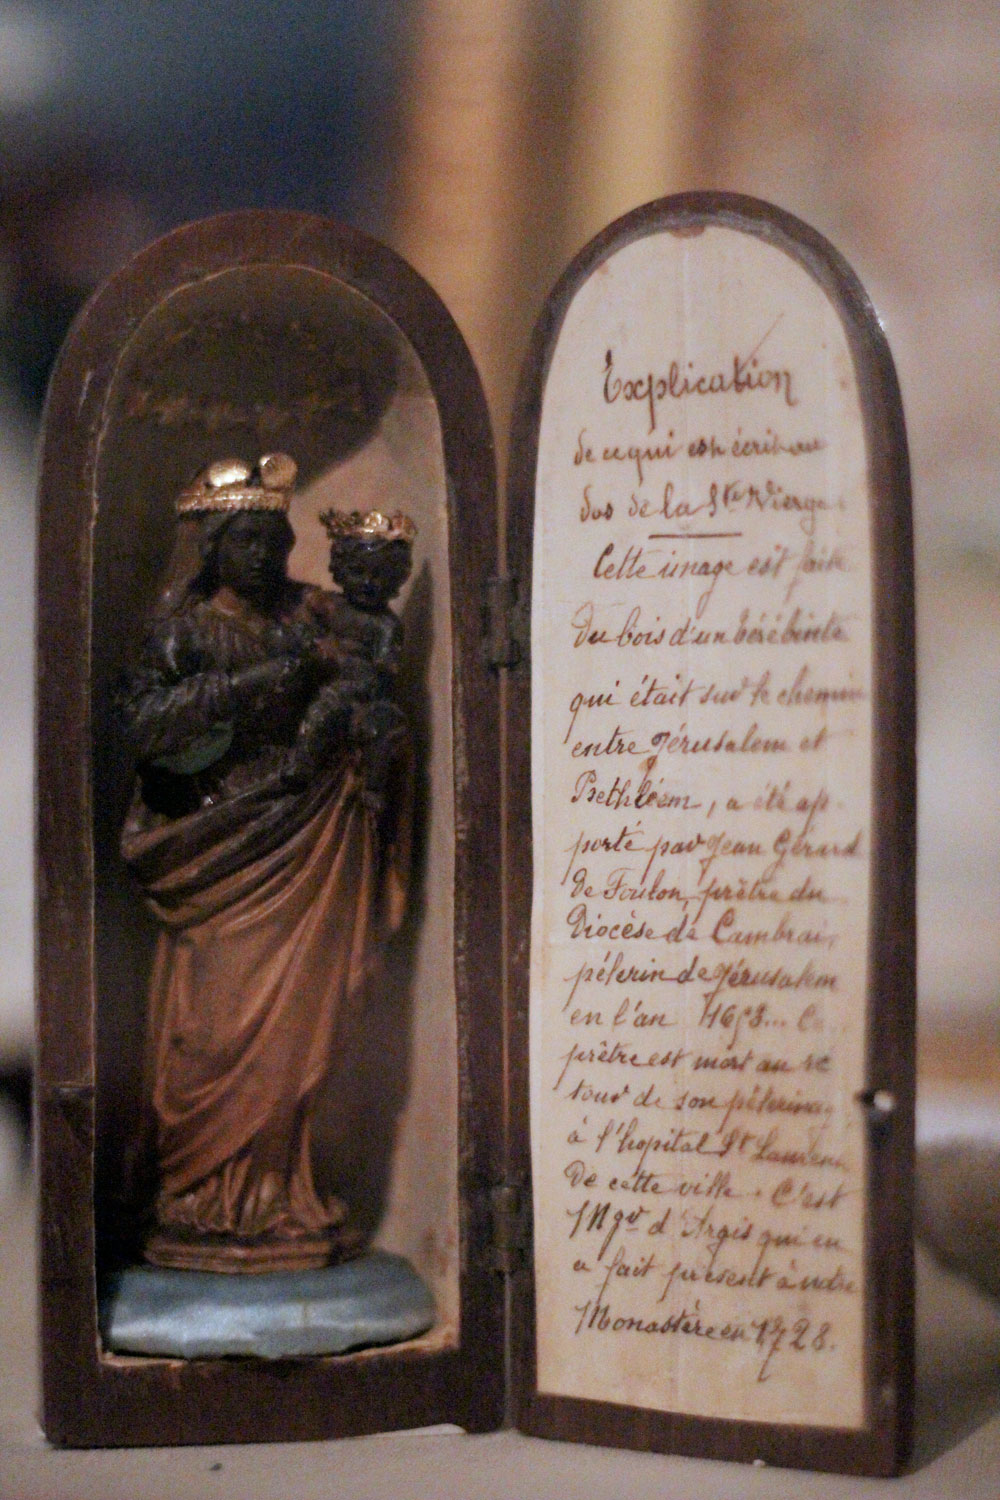 Explication
de ce qui est écrit au
dos de la Ste Vierge
Cette image est faite
du bois d'un térébinte
qui était sur le chemin
entre Jérusalem et
Bethléem, a été ap-
porté par Jean Gérard
de Foulon, prêtre du
Diocèse de Cambrai,
pélerin de Jérusalem
en l'an ... Ce
prêtre est mort au re
tour de son pélerinag
à l'hopital St Laurent
de cette ville. C'est
Mgr d'Argis qui en
a fait present à notre
Monastère en 1728.